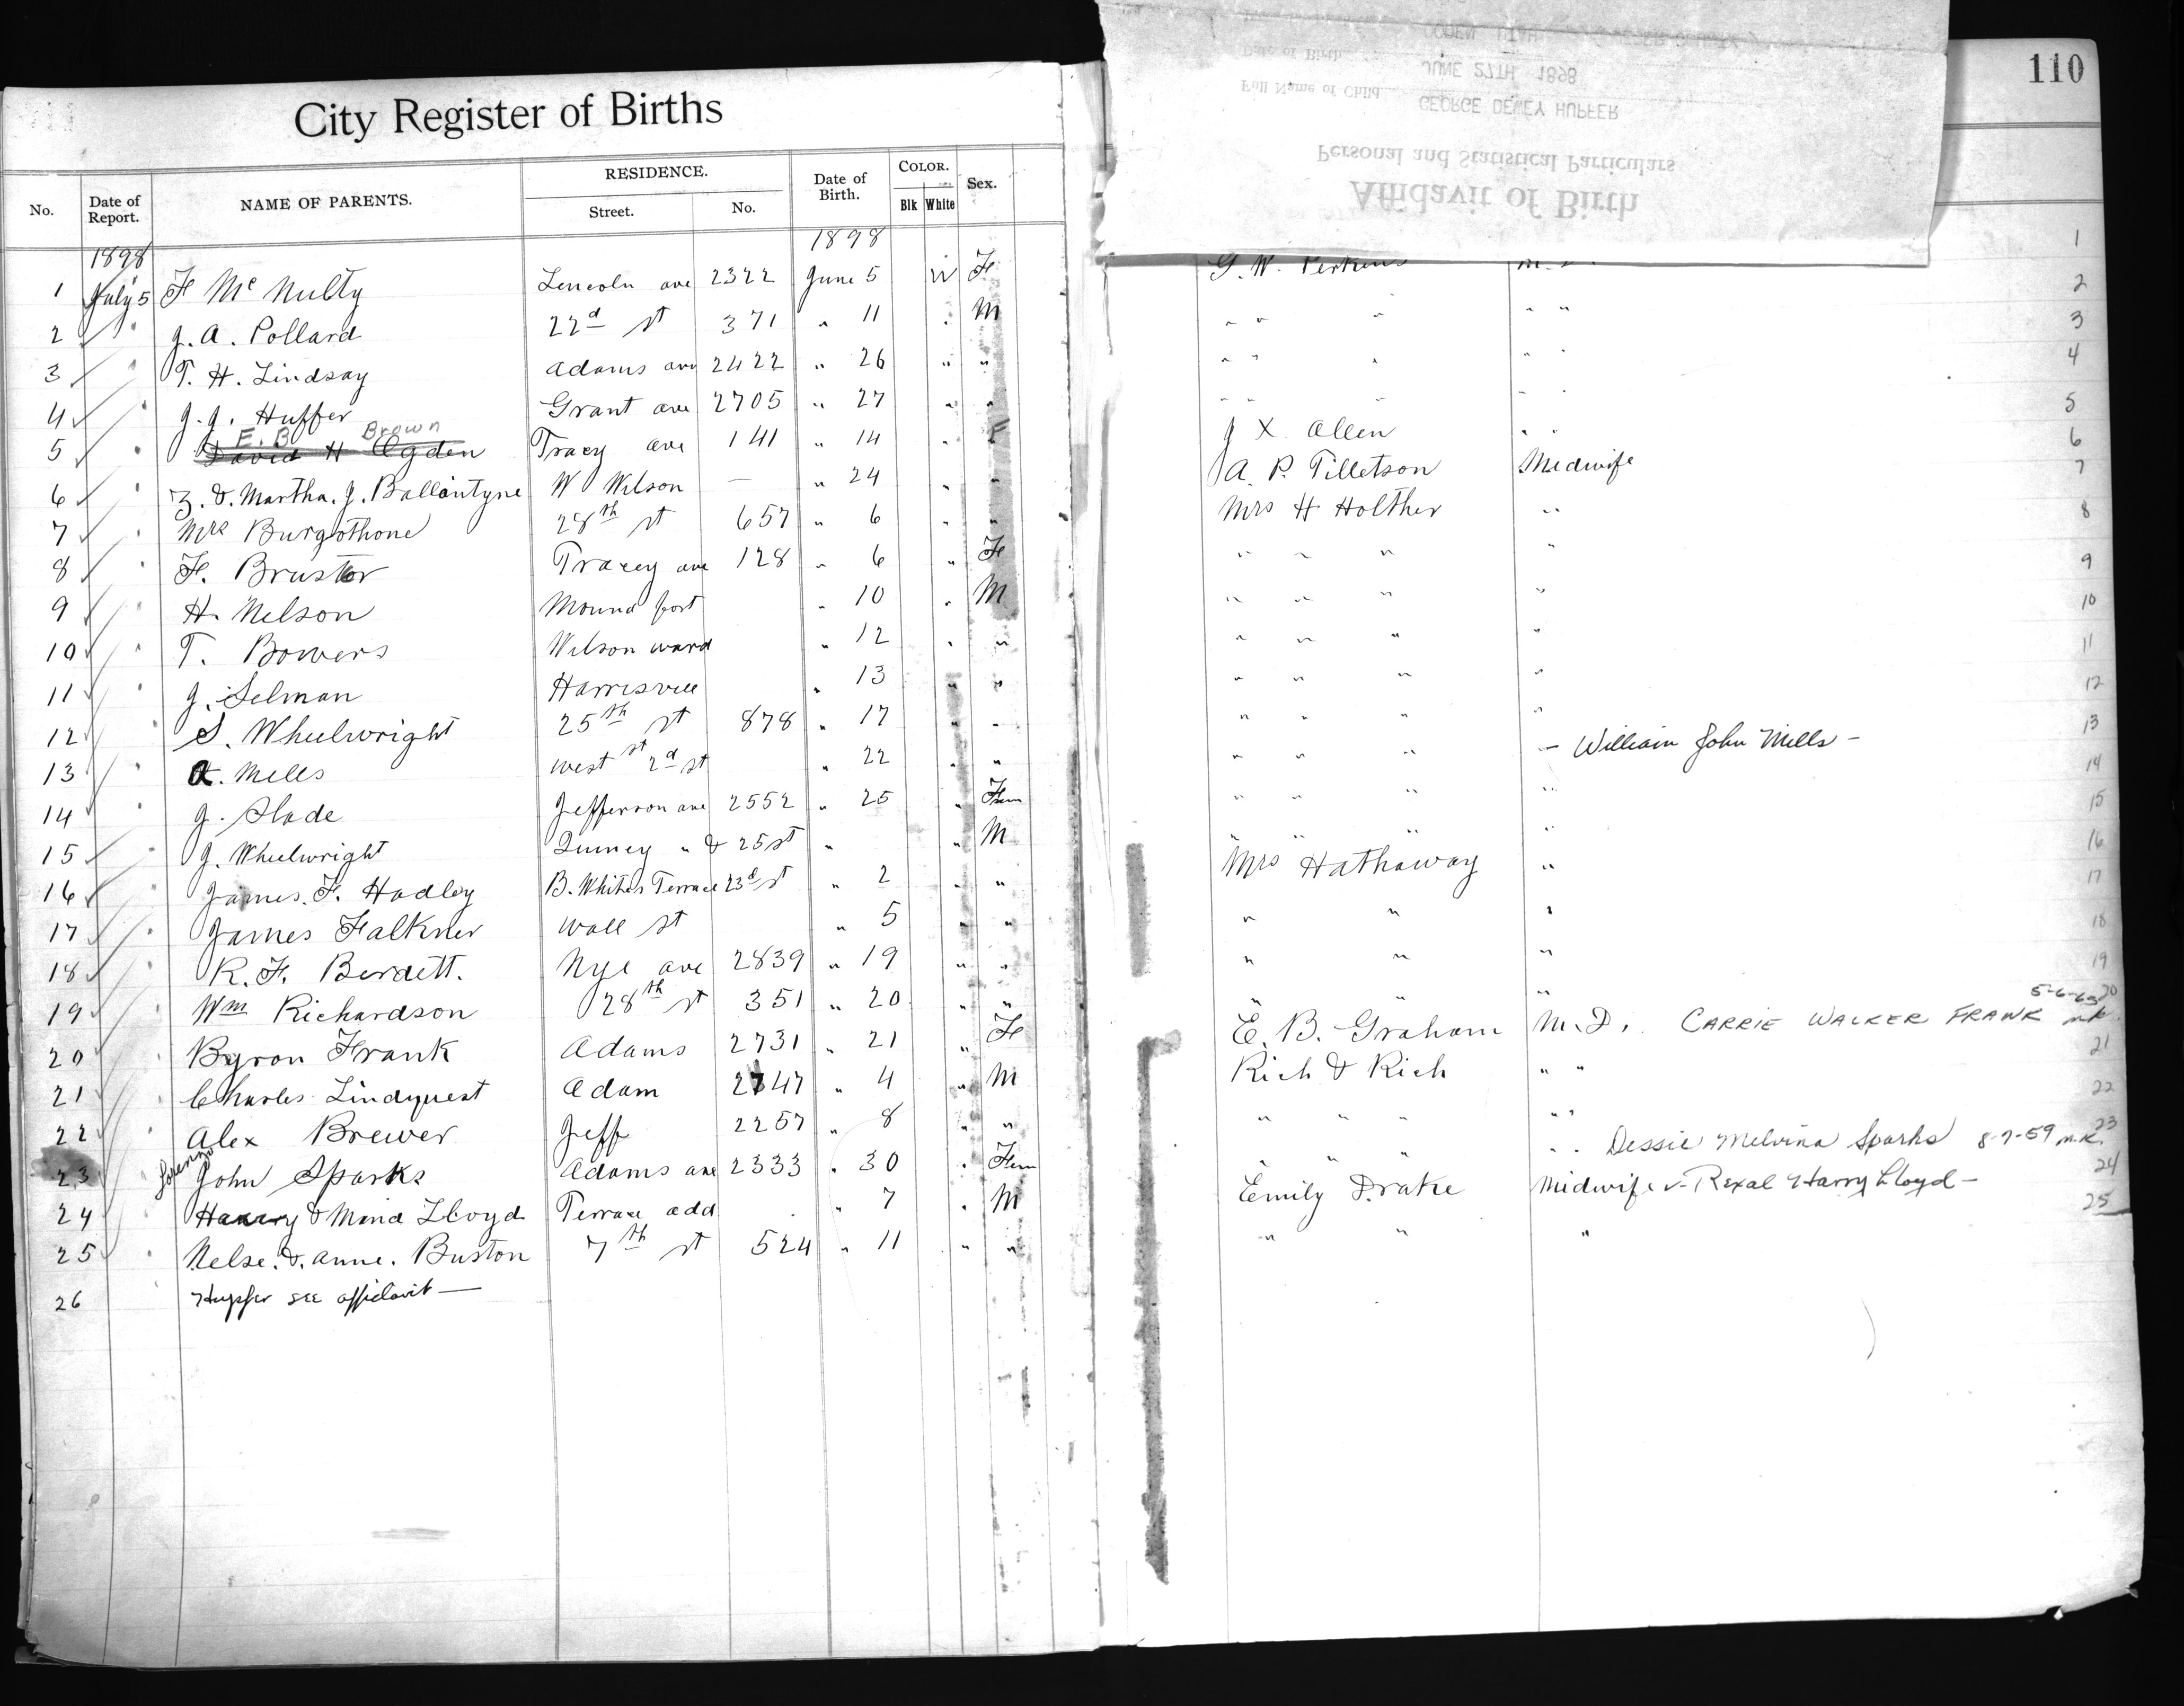 City Register of Births
No. Date of Report. NAME OF PARENTS. RESIDENCE. Street. No. Date of Birth. COLOR. Blk White Sex.
1898 1898
1 July 5 F Mc Nulty Lincoln ave 2322 June 5 W F
2 " J. A. Pollard 22d st 371 " 11 " M
3 " T. H. Lindsay Adams ave 2422 " 26 " "
4 " J. J. Huffer Grant ave 2705 " 27 " "
E. B Brown
5 " David H Ogden Tracy ave 141 " 14 " F
6 " Z. & Martha. J. Ballantyne W Wilson — " 24 " "
7 " Mrs Burgothone 28th st 657 " 6 " "
8 " F. Bruster Tracey ave 128 " 6 " F
9 " H. Nelson Mound fort " 10 " M
10 " T. Bowers Wilson ward " 12 " "
11 " J. Selman Harrisville " 13 " "
12 " S. Wheelwright 25th st 878 " 17 " "
13 " A. Mills west st 2d st " 22 " "
14 " J. Slade Jefferson ave 2552 " 25 " Fem
15 " J. Wheelwright Quincy " & 25 st " " M
16 " James. F. Hadley B. Whites Terrace 23d st " 2 " "
17 " James Falkner Wall st " 5 " "
18 " R. F. Berdett. Nye ave 2839 " 19 " "
19 " Wm Richardson 28th st 351 " 20 " "
20 " Byron Frank Adams 2731 " 21 " F
21 " Charles Lindquest Adam 2747 " 4 " M
22 " Alex Brewer Jeff 2257 " 8 " "
Lorenzo
23 " John Sparks Adams ave 2333 " 30 " Fem
24 " Harry & Mina Lloyd Terrace add " 7 " M
25 " Nelse. & Anne. Buston 7th st 524 " 11 " "
26 Hupfer see affidavit —
110
Affidavit of Birth
Personal and Statistical Particulars
Full Name of Child GEORGE DEWEY HUPFER
Date of Birth JUNE 27TH 1898
OGDEN UTAH
1
G. W. Perkins M.D.
2
" " " " "
3
" " " " "
4
" " " "
5
J X Allen " "
6
A. P. Tilletson Midwife
7
Mrs H Holther "
8
" " " "
9
" " " "
10
" " " "
11
" " " "
12
" " " "
13
" " " — William John Mills —
14
" " " "
15
" " " "
16
Mrs Hathaway "
17
" " "
18
" " "
19
" " "
5-6-63 20
E. B. Graham M. D. CARRIE WALKER FRANK mk
21
Rich & Rich " "
22
" " " " "
23
" " " " " Dessie Melvina Sparks 8-7-59 m.k.
24
Emily Drake Midwife - Rexal Harry Lloyd -
25
" " "